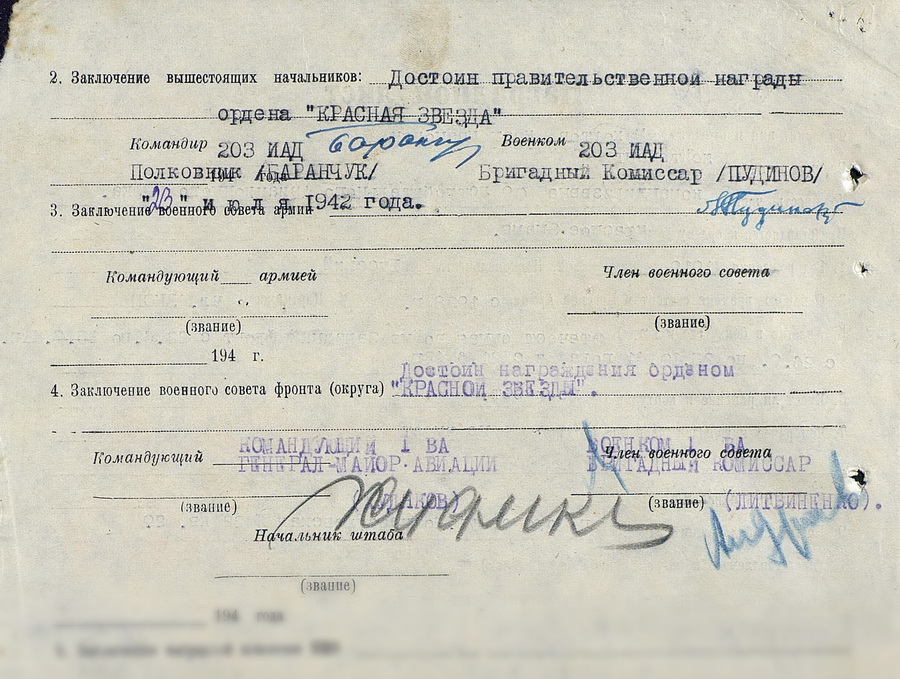 2. Заключение вышестоящих начальников: Достоин правительственной награды
ордена "КРАСНАЯ ЗВЕЗДА"
Командир 203 ИАД Военком 203 ИАД
Полковник /БАРАНЧУК/ Бригадный Комиссар /ПУДИНОВ/
194 года
"23" июля 1942 года.
3. Заключение военного совета армии
Командующий армией Член военного совета
(звание) (звание)
194 г.
Достоин награждения орденом
4. Заключение военного совета фронта (округа) "КРАСНОЙ ЗВЕЗДЫ".
КОМАНДУЮЩИЙ 1 ВА ВОЕНКОМ 1 ВА
Командующий ГЕНЕРАЛ-МАЙОР АВИАЦИИ Член военного совета
БРИГАДНЫЙ КОМИССАР
(звание) (звание) (ЛИТВИНЕНКО).
Начальник штаба
(звание)
194 года